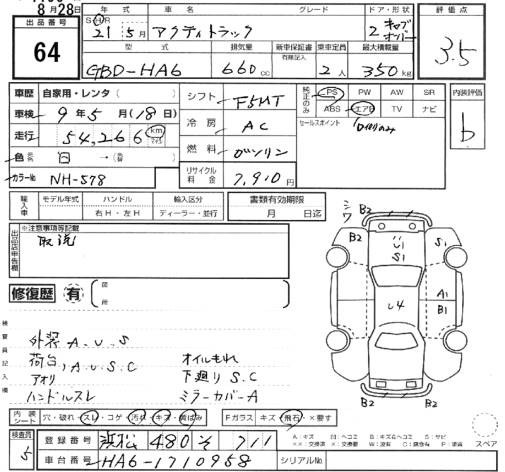 8月28日
出品番号
64
年式
S・H・R
21年5月
車名
アクティトラック
グレード
ドア・形状
2 キャブオーバー
評価点
3.5
型式
GBD-HA6
排気量
660cc
新車保証書
有限記入
乗車定員
2人
最大積載量
350kg
車歴 自家用・レンタ( )
車検 9年5月(18日)
走行 54,266 km マイル
色 白 →( )
カラーNo NH-578
シフト F5MT
冷房 AC
燃料 ガソリン
リサイクル料金 7,910円
純正のみ
PS PW AW SR
ABS エアB TV ナビ
セールスポイント
内装評価
b
輸入車
モデル年式 ハンドル 輸入区分
右H・左H ディーラー・並行
書類有効期限
月 日迄
出品店申告欄
※注意事項等記載
取説
修復歴 有
箇所
検査員記入欄
外装A.U.S
荷台,A.U.S.C
アオリ
ハンドルスレ
オイルもれ
下廻りS.C
ミラーカバーA
シワ
B2
B2
B2
B2
U1
S1
S1
A1
B1
U4
内装シート 穴・破れ・スレ・コゲ 汚れ・キズ・黄ばみ
Fガラス キズ・飛石・×要す
検査員
5
登録番号 浜松 480 そ 711
車台番号 HA6-1710958
シリアルNo
A:キズ U:ヘコミ B:キズ&ヘコミ S:サビ
スペア